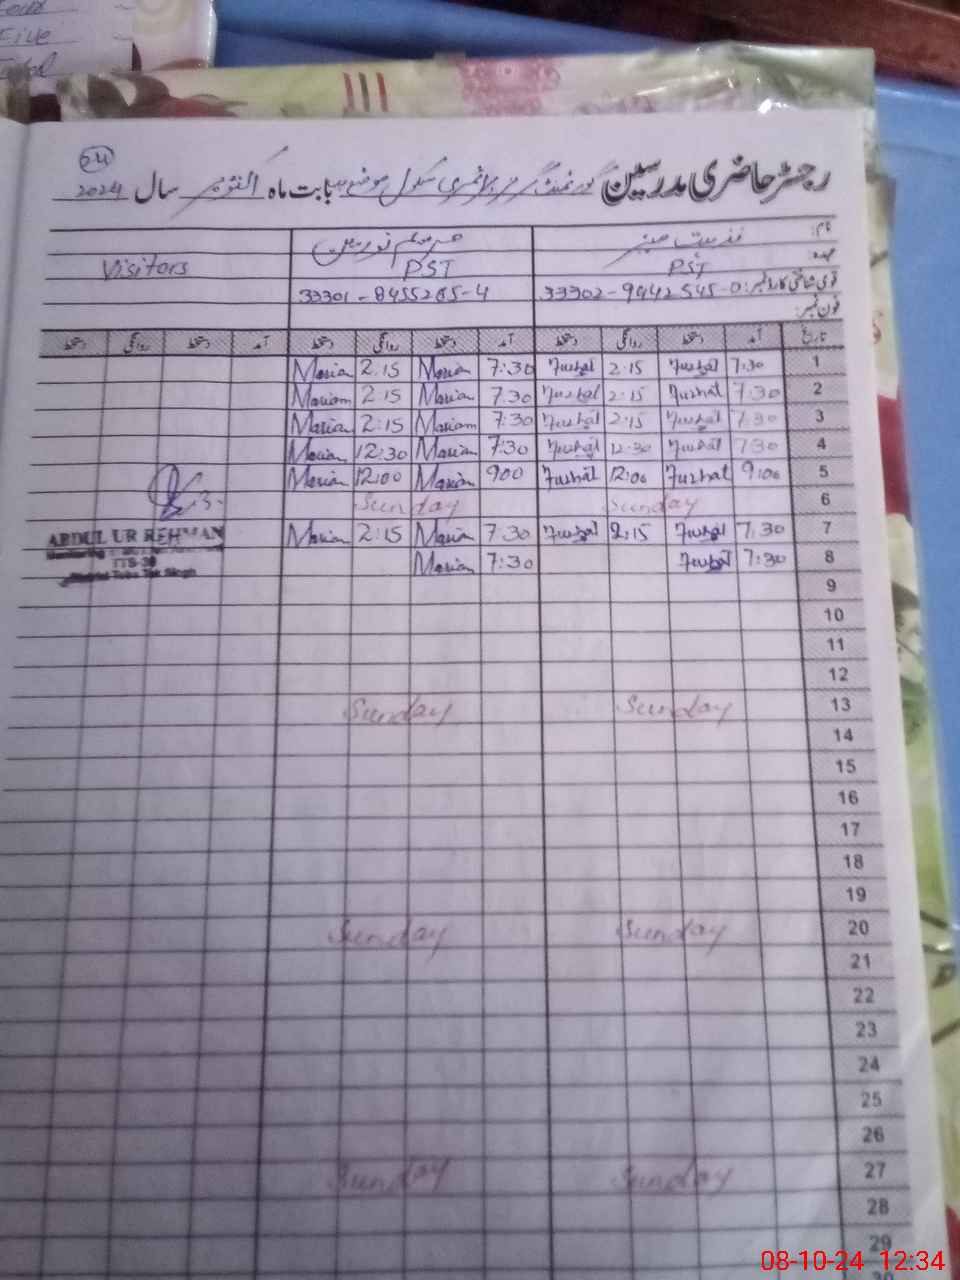 Four
Five
Total
64
رجسٹر حاضری مدرسین گورنمنٹ گرلز پرائمری سکول موضع بابت ماہ اکتوبر سال 2024
نام:
عہدہ PST PST Visitors
قومی شناختی کارڈ نمبر: 33302-9442545-0 33301-8455265-4
فون نمبر:
تاریخ آمد دستخط روانگی دستخط آمد دستخط روانگی دستخط آمد دستخط روانگی دستخط
1 7:30 Fuzhat 2:15 Fuzhat 7:30 Mariam 2:15 Mariam
2 7:30 Fuzhat 2:15 Fuzhat 7:30 Mariam 2:15 Mariam
3 7:30 Fuzhat 2:15 Fuzhat 7:30 Mariam 2:15 Mariam
4 7:30 Fuzhat 12:30 Fuzhat 7:30 Mariam 12:30 Mariam
5 9:00 Fuzhat 12:00 Fuzhat 900 Mariam 12:00 Mariam
6 Sunday Sunday
7 7:30 Fuzhat 2:15 Fuzhat 7:30 Mariam 2:15 Mariam
ABDUL UR REHMAN
8 7:30 Fuzhat 7:30 Mariam
TTS-30
District Toba Tek Singh
9
10
11
12
13 Sunday Sunday
14
15
16
17
18
19
20 Sunday Sunday
21
22
23
24
25
26
27 Sunday Sunday
28
29
08-10-24 12:34